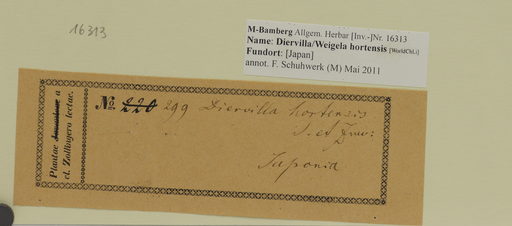 16313
M-Bamberg Allgem. Herbar [Inv.-]Nr. 16313
Name: Diervilla/Weigela hortensis [WorldChL.]
Fundort: [Japan]
annot. F. Schuhwerk (M) Mai 2011
Plantae Javanicae a
cl. Zollingero lectae.
No. 220 299 Diervilla hortensis
S. et Zucc:
Japonia